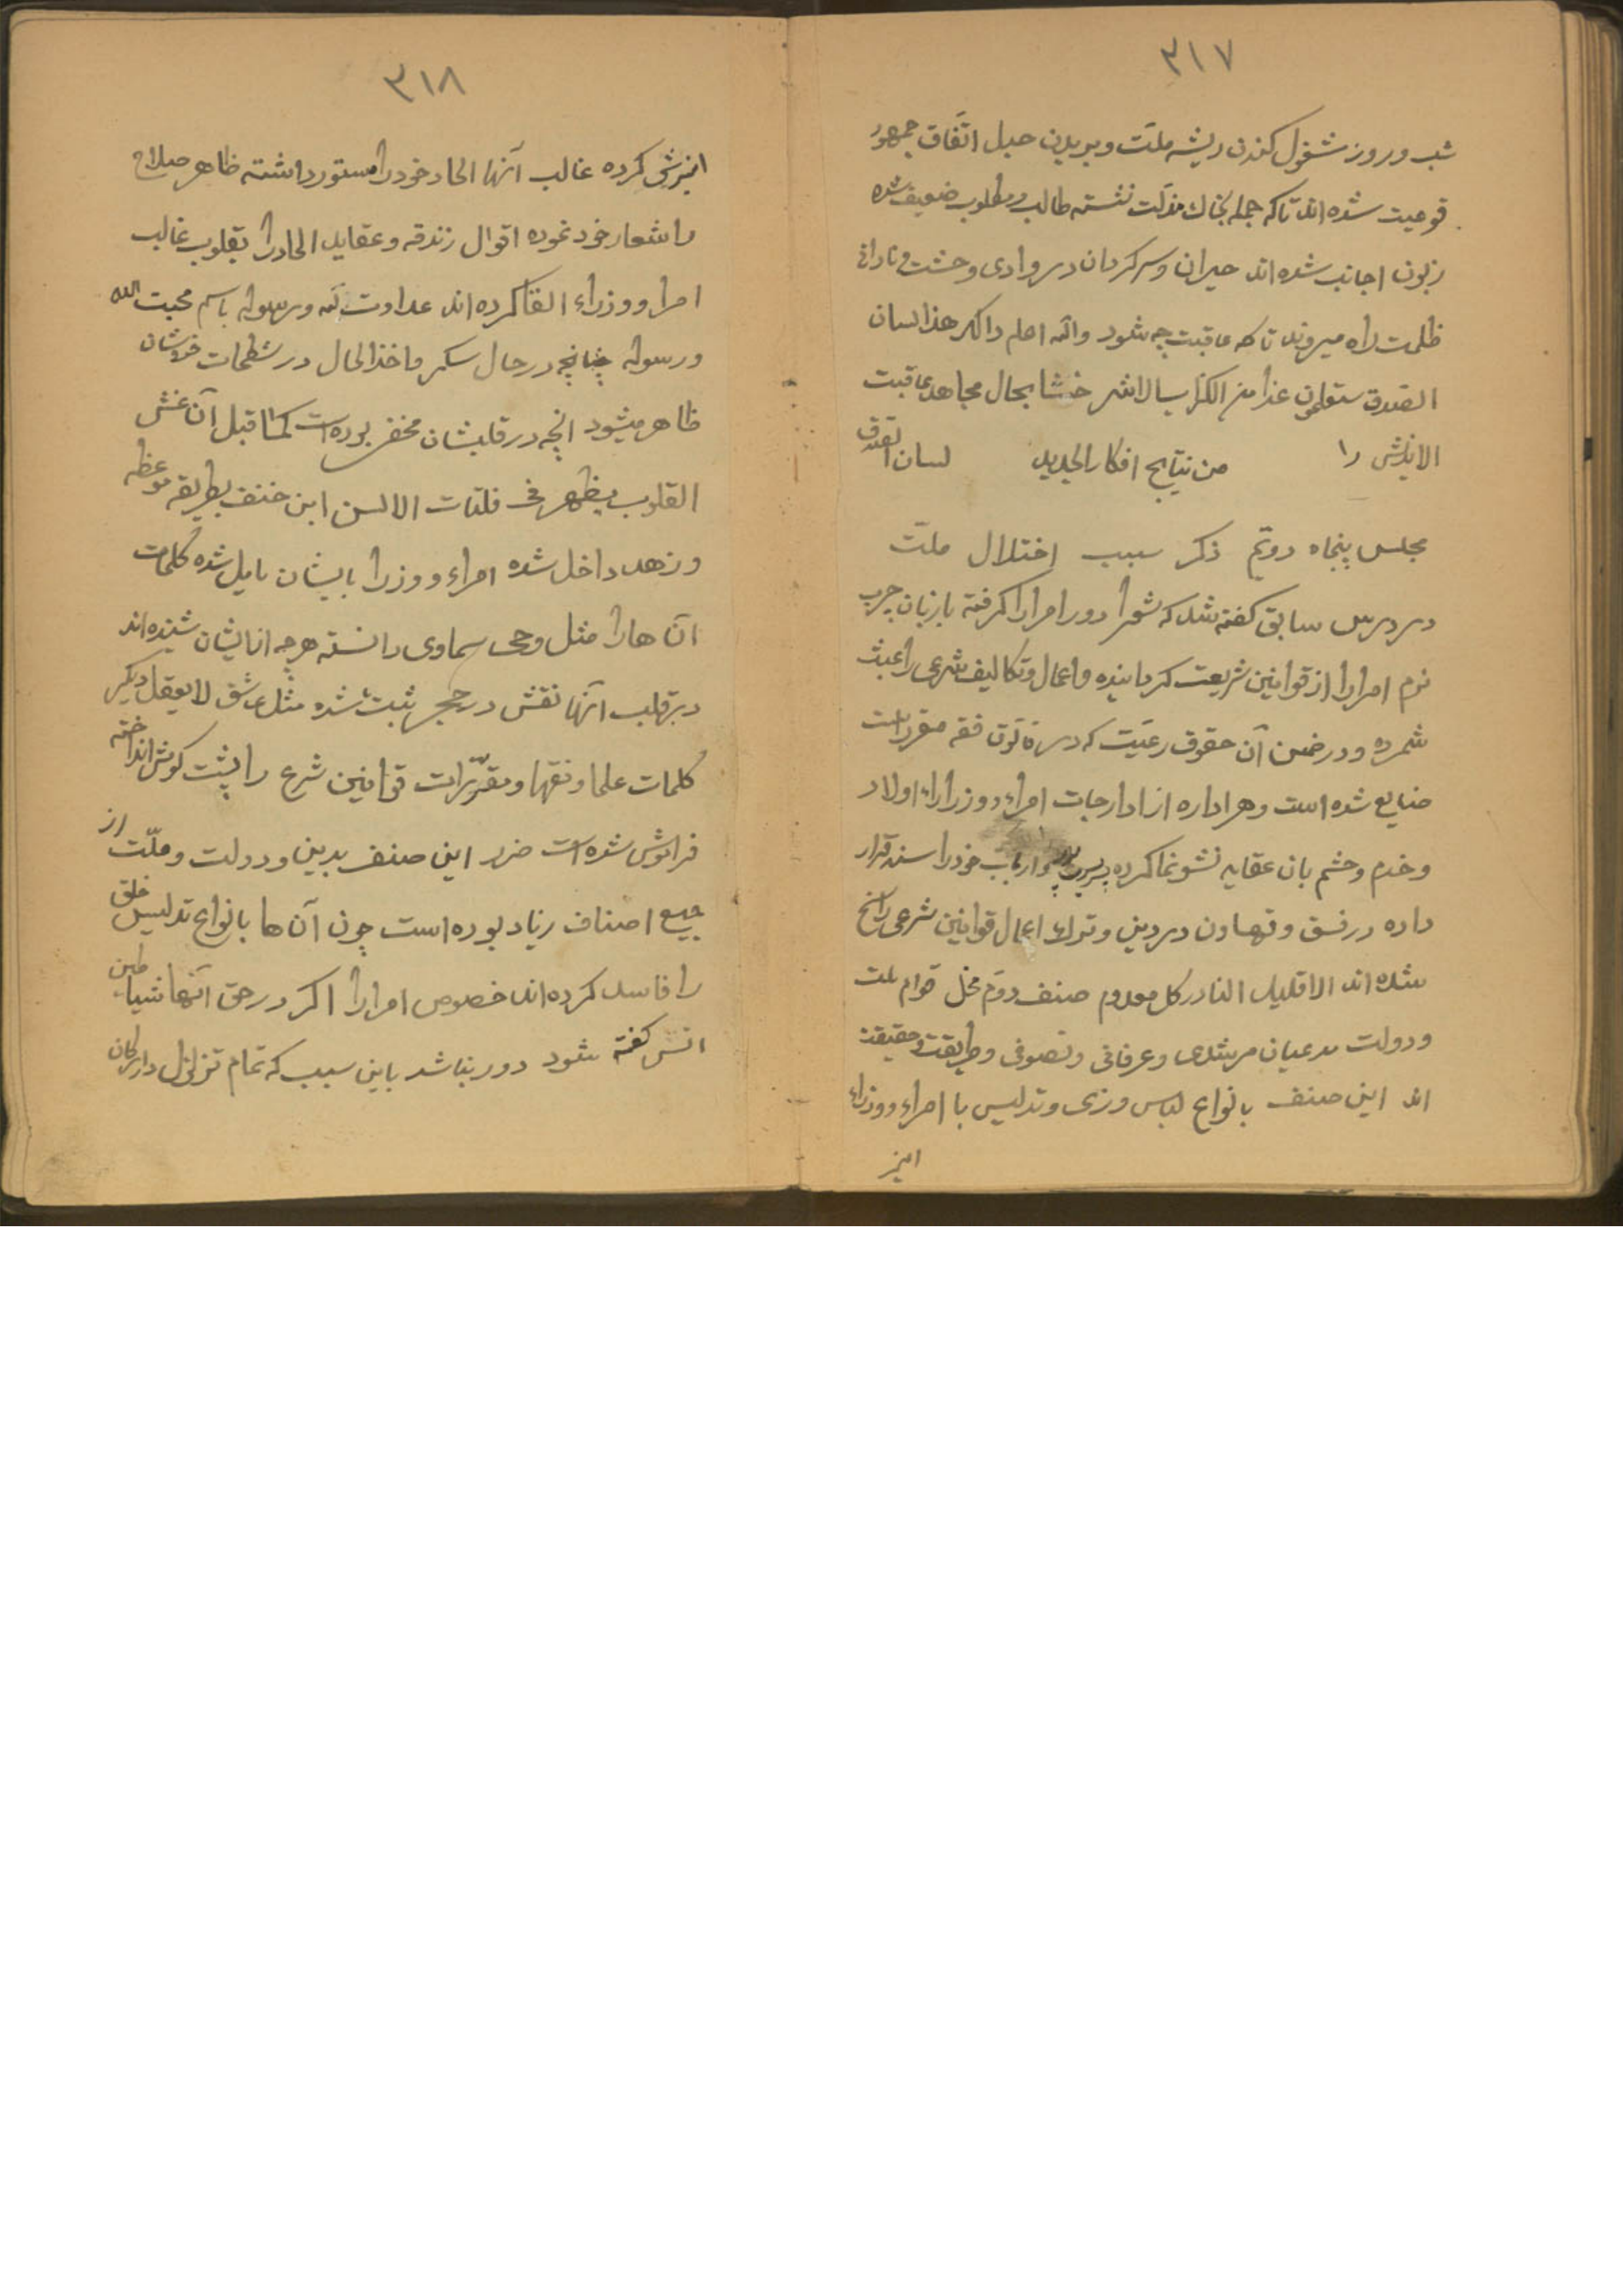 ٣١٧
شب و روز مشغول کندن ریشه ملّت و بریدن حبل اتّفاق جمهور
قومیت شده اند تا که جمله بخاك مذلّت نشسته طالب و مطلوب ضعیف شده
زبون اجانب شده اند حیران و سرکردان در وادی وحشت و نادانی
ظلمت راه میروند تا که عاقبت چه شود والله اعلم ذاکر هذا لسان
الصدق ستعلمون غدا من الکذاب الاشر خوشا بحال مجاهد عاقبت
الاندیش را من نتایج افکار الجدید لسان الصدق
مجلس پنجاه دوّیم ذکر سبب اختلال ملّت
در درس سابق کفته شد که شعرا دور امرا را کرفته با زبان چرب
نرم امرا را از قوانین شریعت کردانیده و اعمال و تکالیف شرعی را عبث
شمرده و در ضمن آن حقوق رعیّت که در قانون فقه مقرر است
ضایع شده است و هر اداره از ادارجات امراء و وزرا را اولاد
و خدم و حشم بان عقاید نشو نما کرده و ارباب خود را سند قرار
داده در فسق و تهاون در دین و ترك اعمال قوانین شرعی راسخ
شده اند الا قلیل النادر کل معدوم صنف دوّم مخل قوام ملت
و دولت مدعیان مرشدی و عرفانی و تصوفی و طریقت و حقیقت
اند این صنف بانواع لباس و زی و تدلیس با امراء و وزراء
امیز
٣١٨
امیزش کرده غالب آنها الحاد خود را مستور داشته ظاهر صلاح
را شعار خود نموده اقوال زندقه و عقاید الحاد را بقلوب غالب
امرا و وزراء القا کرده اند عداوت لله و رسوله باسم محبت الله
و رسوله چنانچه در حال سکر و اخذ الحال در شطحات خودشان
ظاهر میشود انچه در قلبشان مخفی بوده است کما قبل آن غش
القلوب یظهر فی فلتات الالسن این صنف بطریقه موعظه
و زهد داخل شده امراء و وزرا بایشان مایل شده کلمات
آن ها را مثل وحی سماوی دانسته هر چه از ایشان شنیده اند
در قلب آنها نقش در حجر ثبت شده مثل عاشق لا یعقل دیکر
کلمات علما و فقها و مقرّرات قوانین شرع را پشت کوش انداخته
فراموش شده است ضرر این صنف بدین و دولت و ملّت از
جمیع اصناف زیاد بوده است چون آن ها بانواع تدلیس خلق
را فاسد کرده اند خصوص امرا را اکر در حق آنها شیاطین
انس کفته شود دور نباشد باین سبب که تمام تزلزل در ارکان